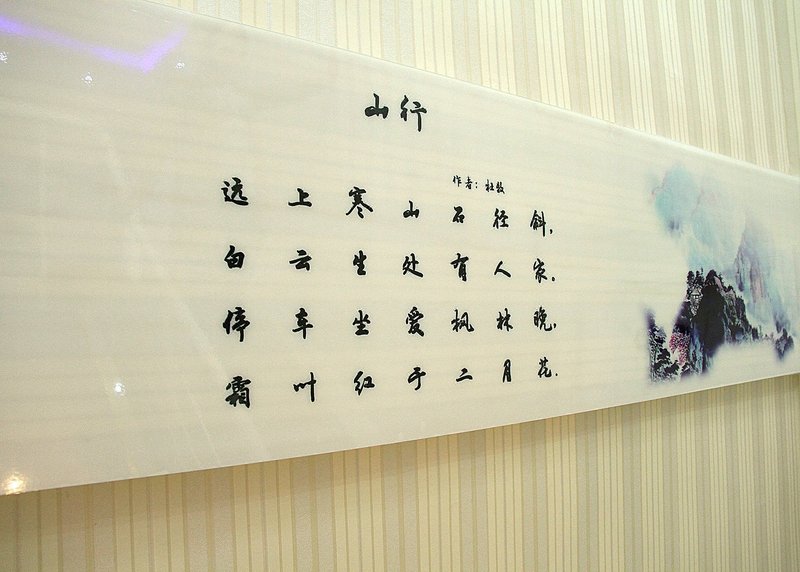 山行
作者：杜牧
远上寒山石径斜，
白云生处有人家。
停车坐爱枫林晚，
霜叶红于二月花.